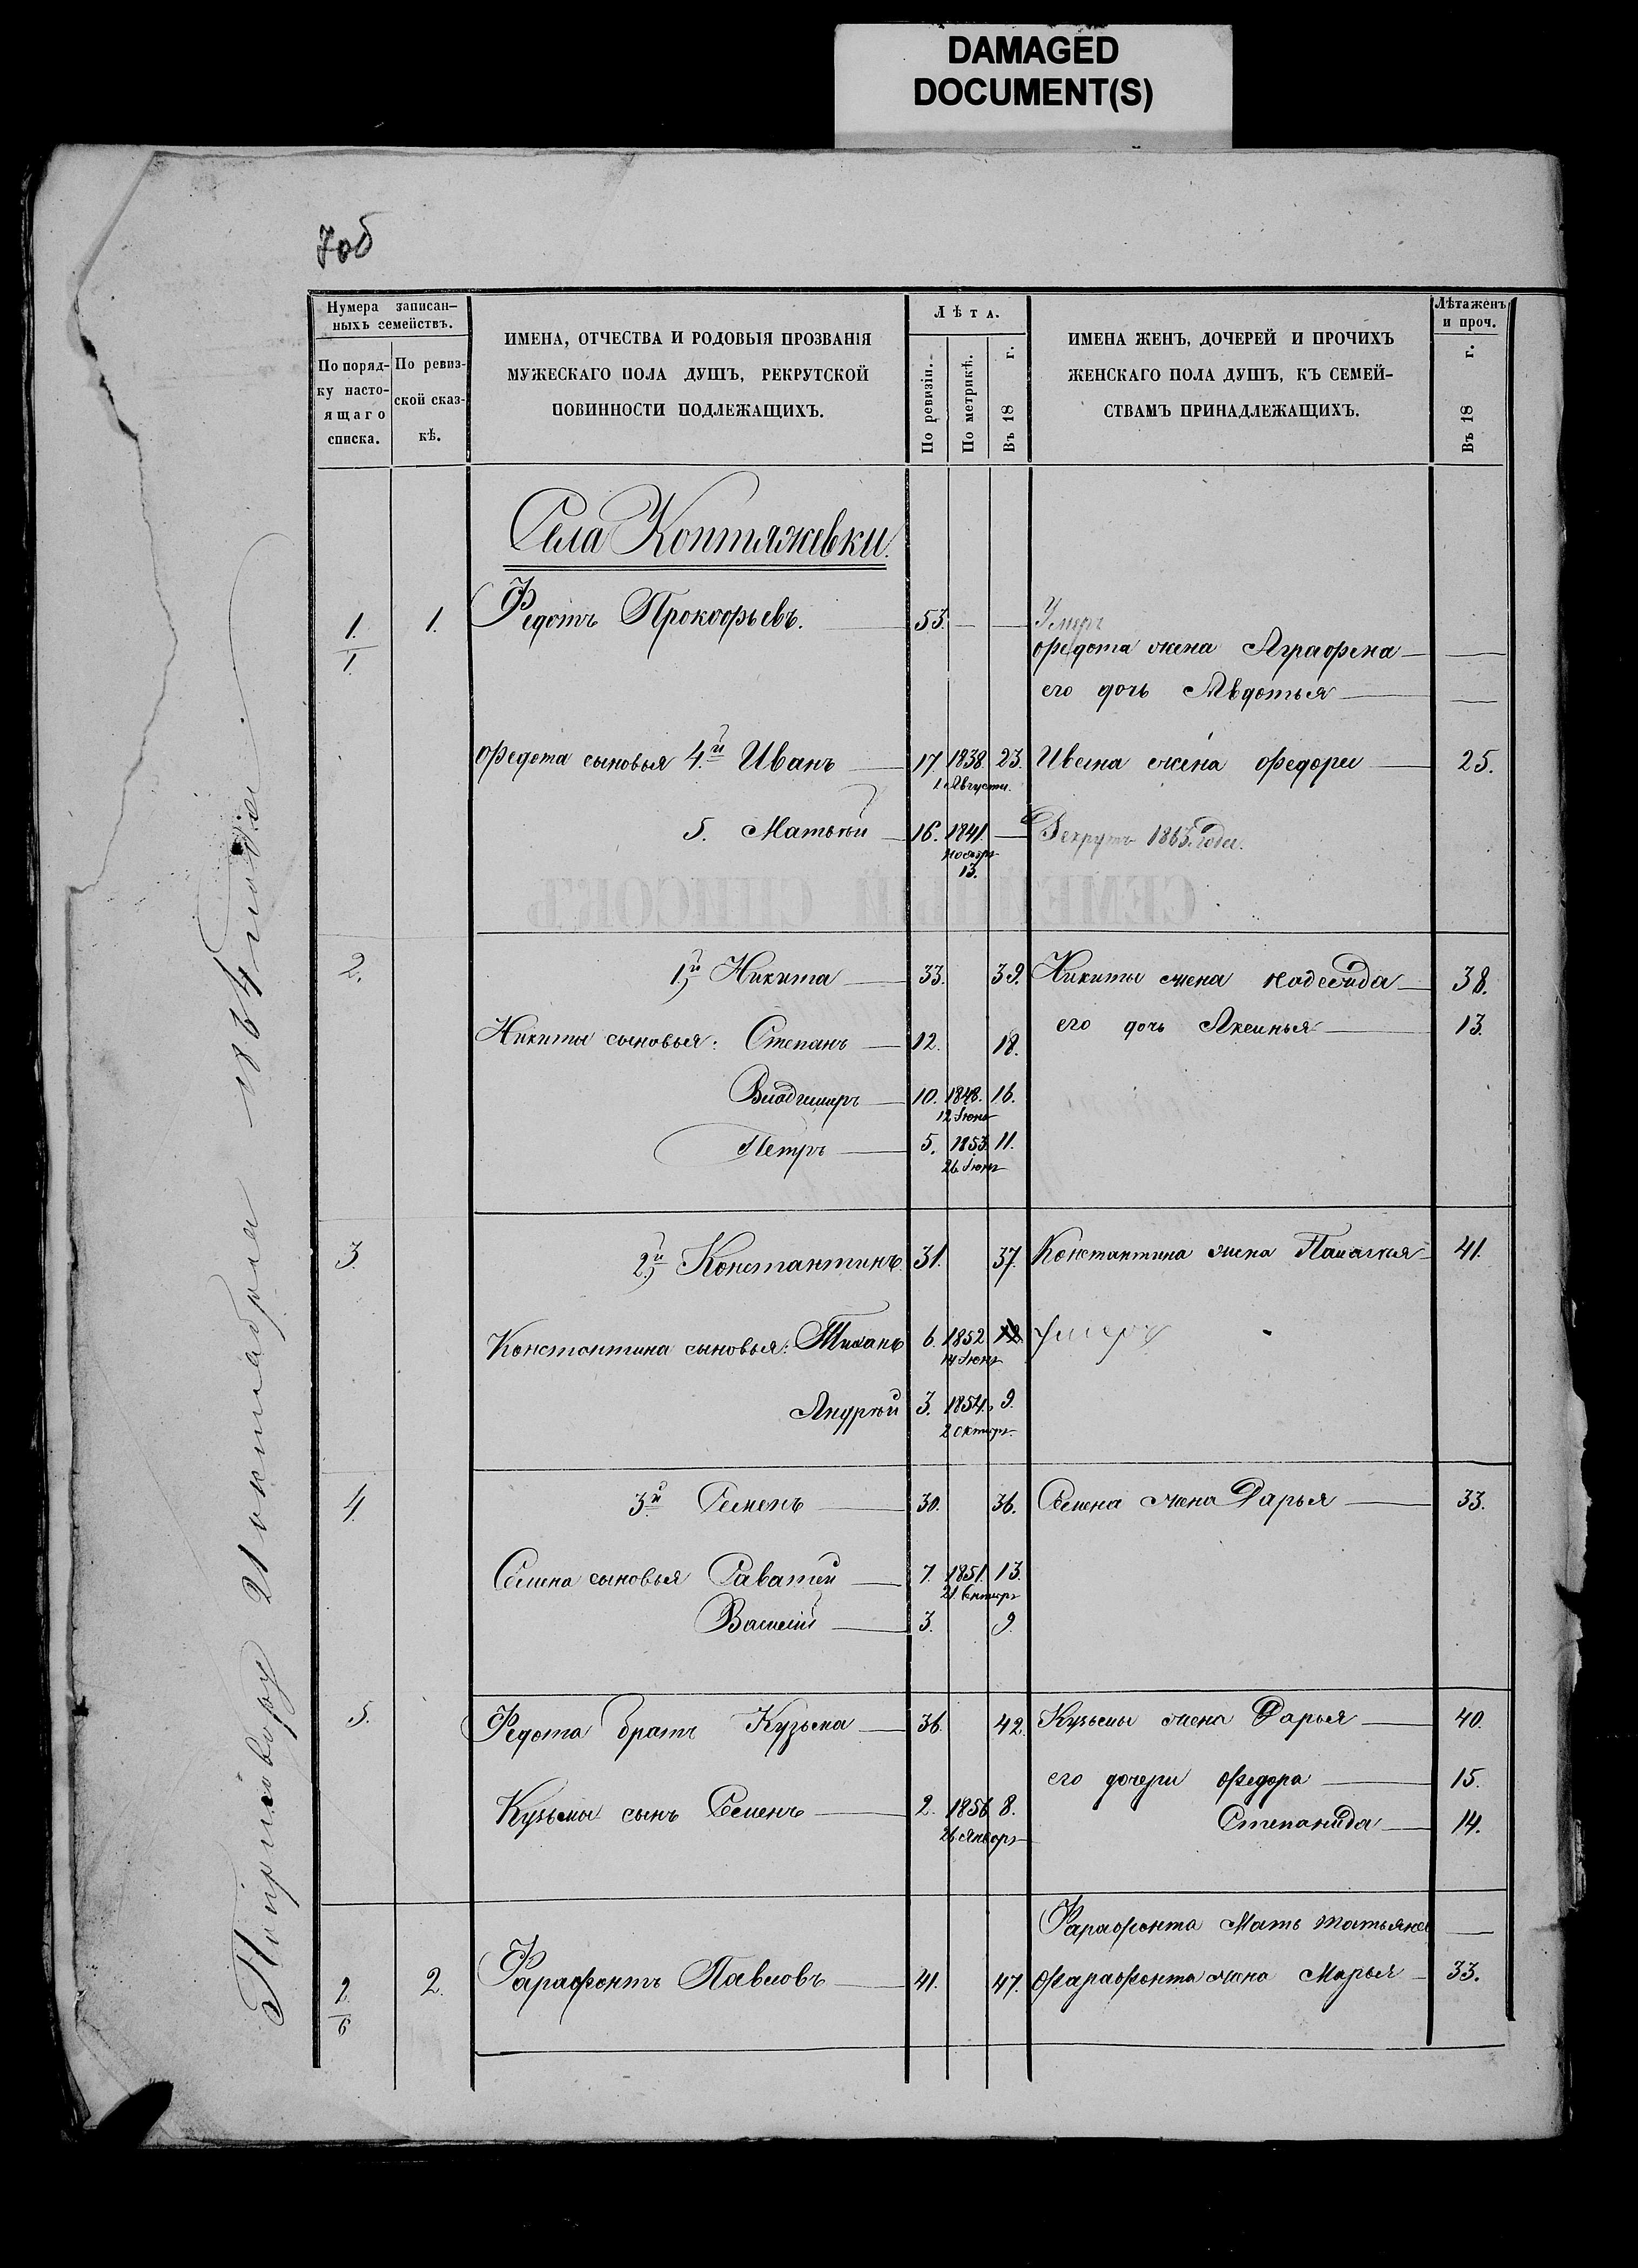 DAMAGED
DOCUMENT(S)
7об
Нумера записан-
ныхъ семействъ.
По поряд-
ку насто-
ящаго
списка.
По ревиз-
ской сказ-
кѣ.
ИМЕНА, ОТЧЕСТВА И РОДОВЫЯ ПРОЗВАНІЯ
МУЖЕСКАГО ПОЛА ДУШЪ, РЕКРУТСКОЙ
ПОВИННОСТИ ПОДЛЕЖАЩИХЪ.
Лѣта.
По ревизіи.
По метрикѣ.
Въ 18 г.
ИМЕНА ЖЕНЪ, ДОЧЕРЕЙ И ПРОЧИХЪ
ЖЕНСКАГО ПОЛА ДУШЪ, КЪ СЕМЕЙ-
СТВАМЪ ПРИНАДЛЕЖАЩИХЪ.
Лѣта женъ
и проч.
Въ 18 г.
Села Коптяжевки.
1. 1. Федотъ Прокофьевъ. 53. Умеръ
1. Федота жена Аграфена
его дочь Авдотья
Федота сыновья 4.й Иванъ 17. 1838. 23. Ивана жена Федора 25.
1 Августа.
5. Матвѣй 16. 1841. Рекрутъ 1863. года.
ноября
13.
СЕМЕЙНЫЙ СПИСОКЪ
2. 1й Никита 33. 39. Никиты жена Надежда 38.
его дочь Аксинья 13.
Никиты сыновья: Степанъ 12. 18.
Владимиръ 10. 1848. 16.
12 Іюня
Петръ 5. 1853. 11.
26 Іюня
3. 2й Константинъ 31. 37. Константина жена Палагія 41.
Константина сыновья: 6. 1852. 12 Умеръ
14 Іюня
Андрѣй 3. 1854. 9.
2 октябр.
4. 3й Семенъ 30. 36. Семена жена Дарья 33.
Семена сыновья Саватій 7. 1851. 13.
21.
Василій 3. 9.
5. Федота братъ Кузьма 36. 42. Кузьмы жена Дарья 40.
его дочери Федора 15.
Кузьмы сынъ Семенъ 2. 1856. 8.
26 Январ
Степанида 14.
Фарафонта Мать Татьяна
2. 2. Фарафонтъ Павловъ 41. 47. Фарафонта жена Марья 33.
6
По приговору 21 октября 1864 года.